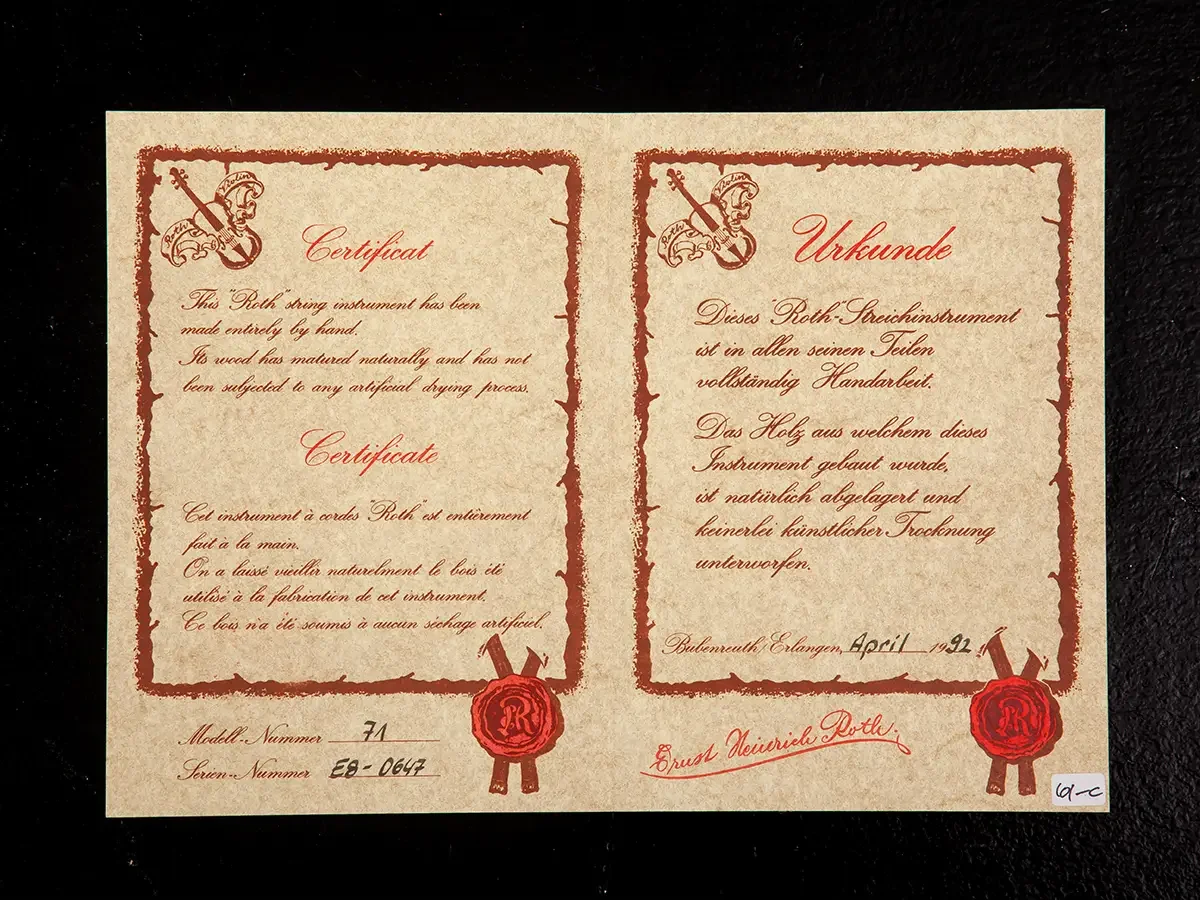 Violin
Roth
Certificat
This "Roth" string instrument has been
made entirely by hand.
Its wood has matured naturally and has not
been subjected to any artificial drying process.
Certificate
Cet instrument à cordes "Roth" est entièrement
fait à la main.
On a laissé vieillir naturelment le bois été
utilisé à la fabrication de cet instrument.
Ce bois n'a été soumis à aucun séchage artificiel.
Modell-Nummer 71
Serien-Nummer E8-0647
R
Violin
Roth
Urkunde
Dieses "Roth"-Streichinstrument
ist in allen seinen Teilen
vollständig Handarbeit.
Das Holz aus welchem dieses
Instrument gebaut wurde,
ist natürlich abgelagert und
keinerlei künstlicher Trocknung
unterworfen.
Bubenreuth/Erlangen, April 1992
Ernst Heinrich Roth
R
61-C